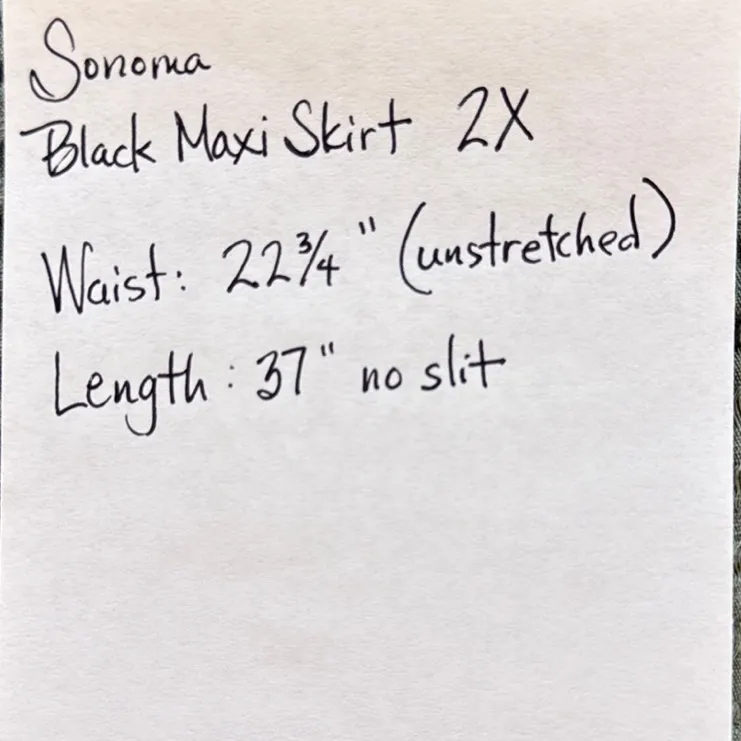 Sonoma
Black Maxi Skirt 2X
Waist: 22¾" (unstretched)
Length: 37" no slit